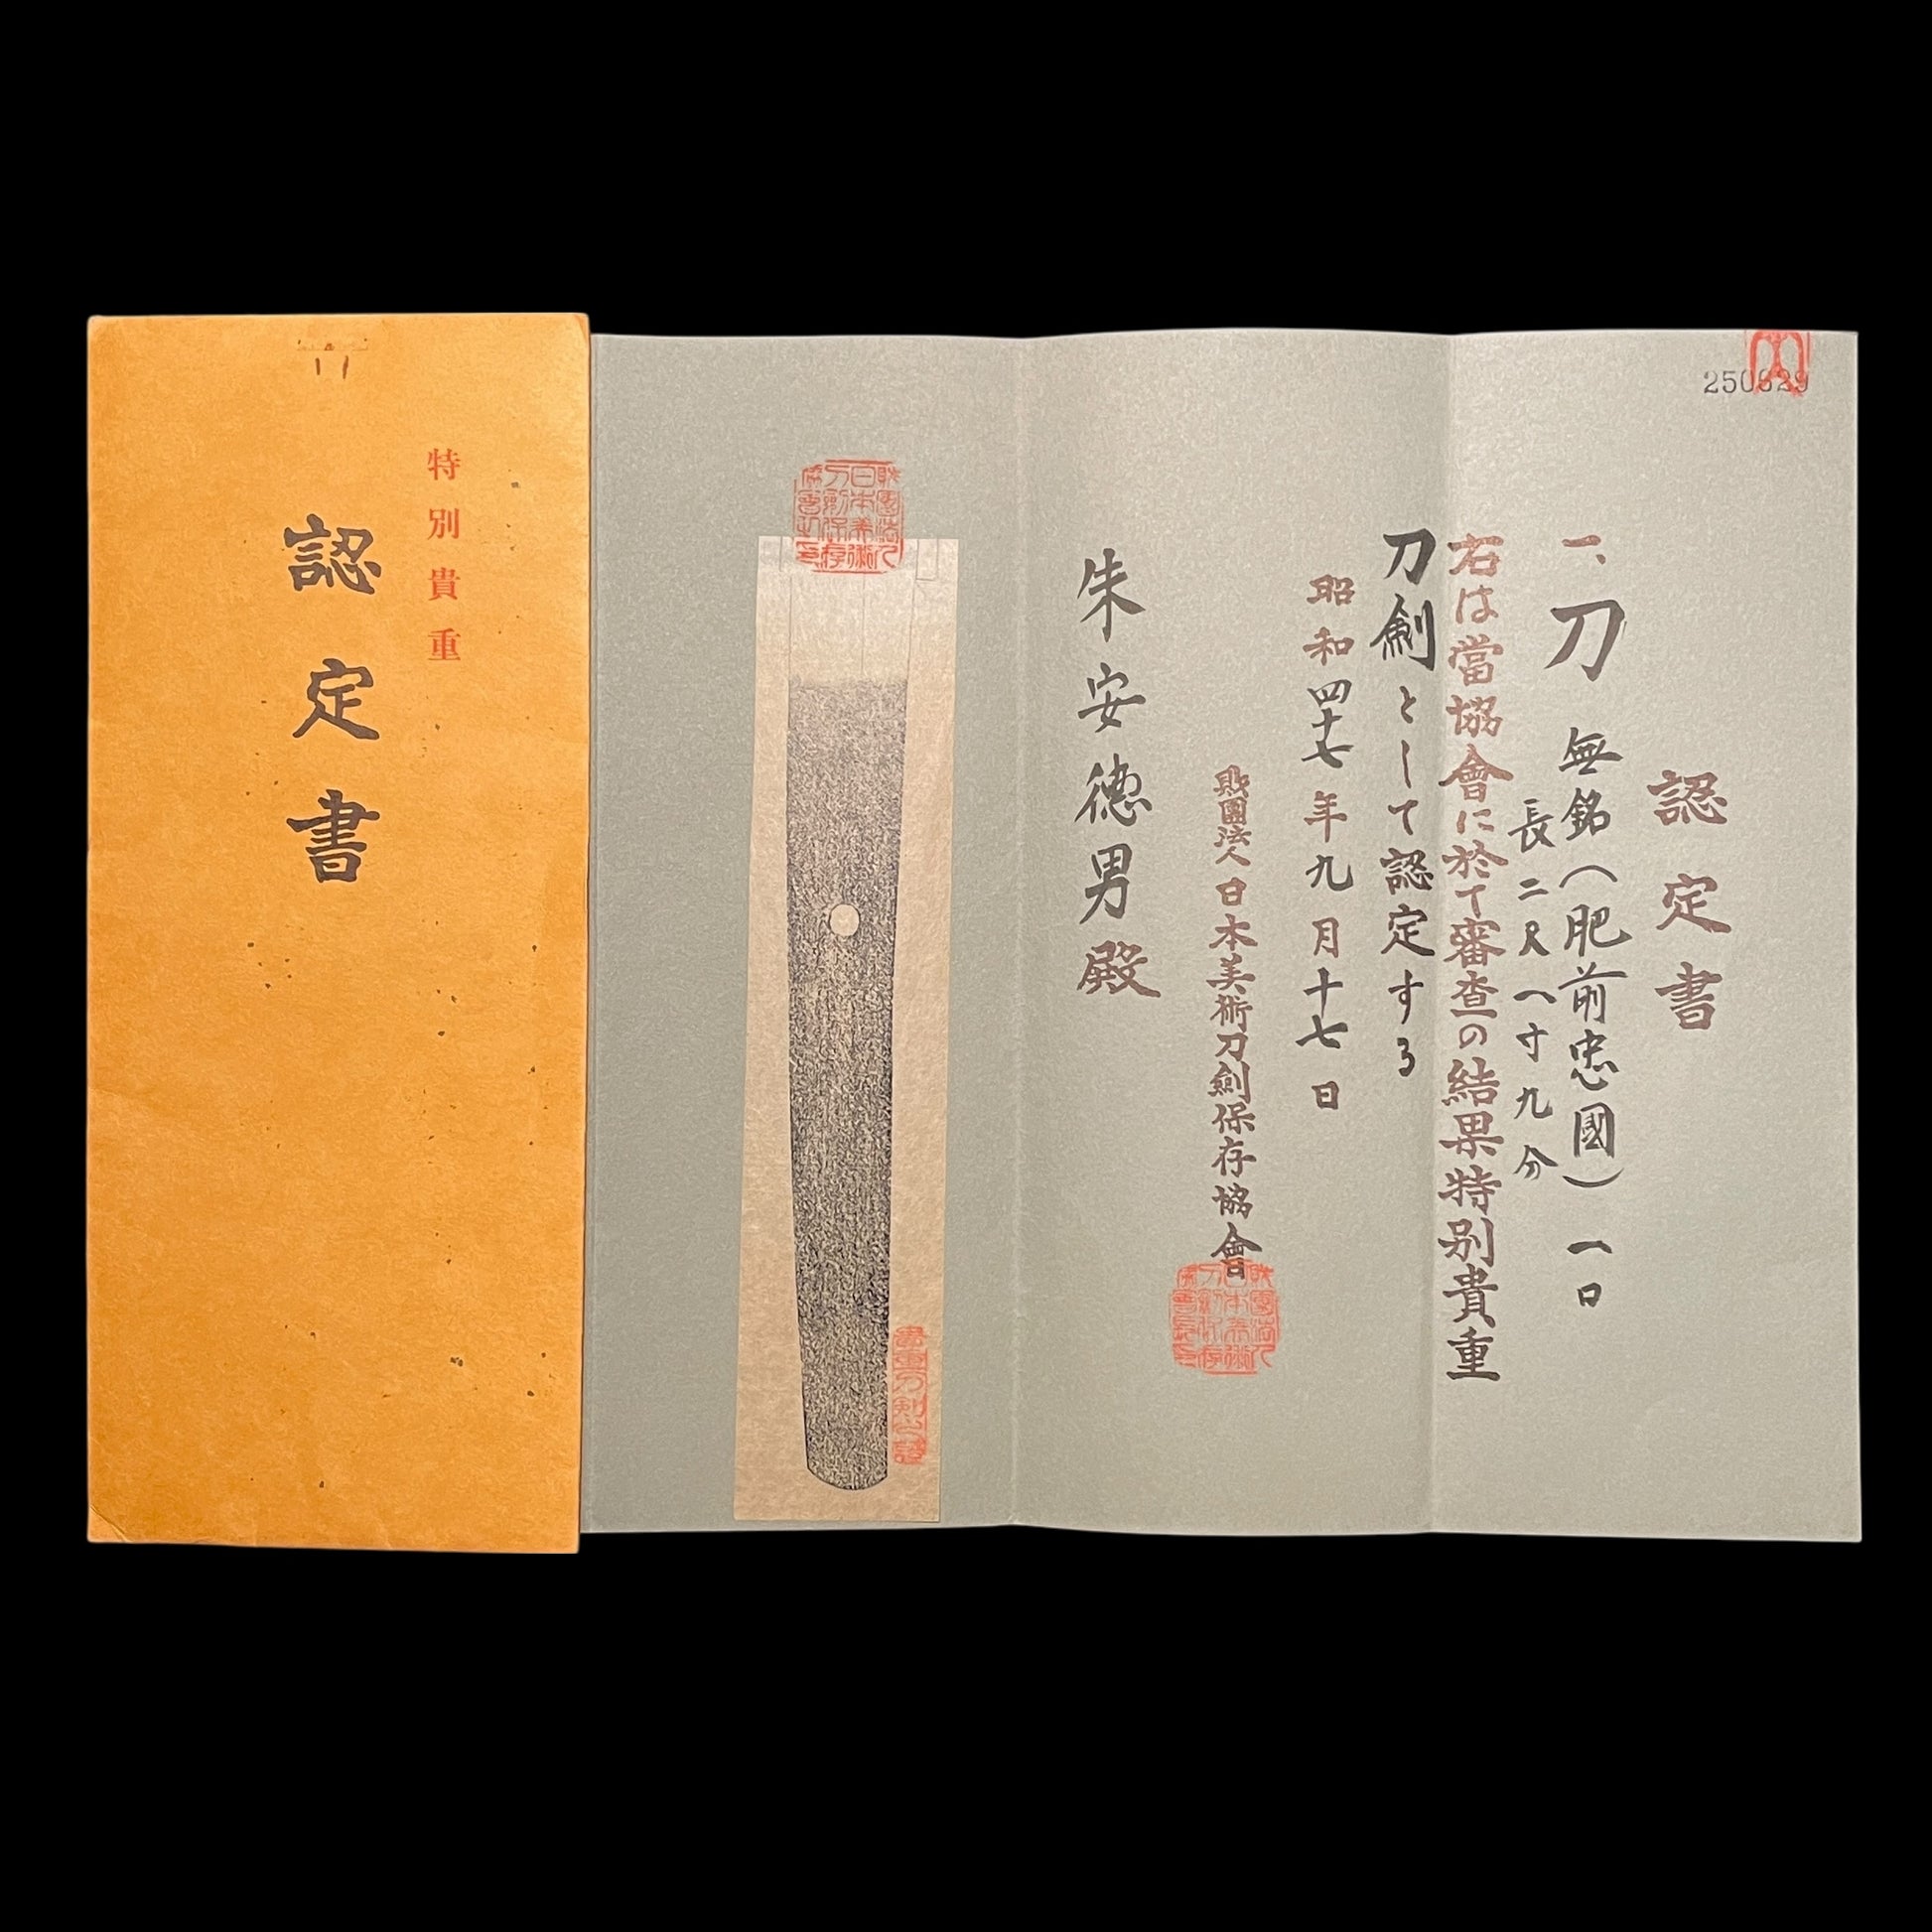 特別貴重
認定書
認定書
一、刀 無銘(肥前忠國)一口
長二尺八寸九分
右は當協會に於て審査の結果特別貴重
刀劍として認定する
昭和四十七年九月十七日
財團法人日本美術刀劍保存協會
朱安徳男殿